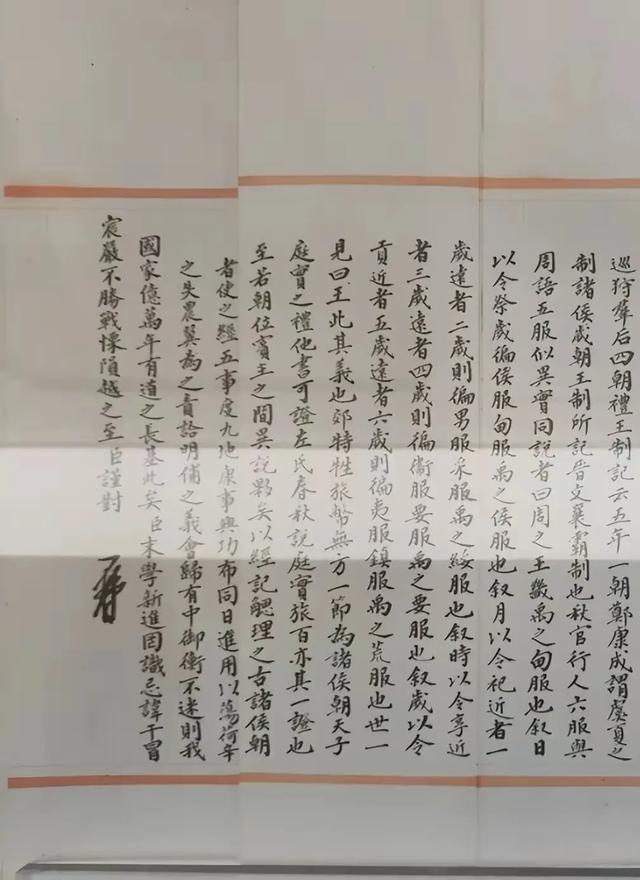 巡狩羣后四朝禮王制記云五年一朝鄭康成謂虞夏之
制諸侯歲朝王制所記晉文襄霸制也秋官行人六服與
周語五服似異實同說者曰周之王畿禹之甸服也叙日
以令祭歲徧侯服甸服禹之侯服也叙月以令祀近者一
歲遠者二歲則徧男服采服禹之綏服也叙時以令享近
者三歲遠者四歲則徧衞服要服禹之要服也叙歲以令
貢近者五歲遠者六歲則徧夷服鎮服禹之荒服也世一
見曰王此其義也郊特牲旅幣無方一節為諸侯朝天子
庭實之禮他書可證左氏春秋說庭實旅百亦其一證也
至若朝位賓王之間異說夥矣以經記䚡理之古諸侯朝
者使之經五事度九地康事興功布同日進用以蕩
之失農冀為之責詥明俌之義會歸有中御衡不迷則我
國家億萬年有道之長基此矣臣末學新進罔識忌諱干冒
宸嚴不勝戰慄隕越之至臣謹對